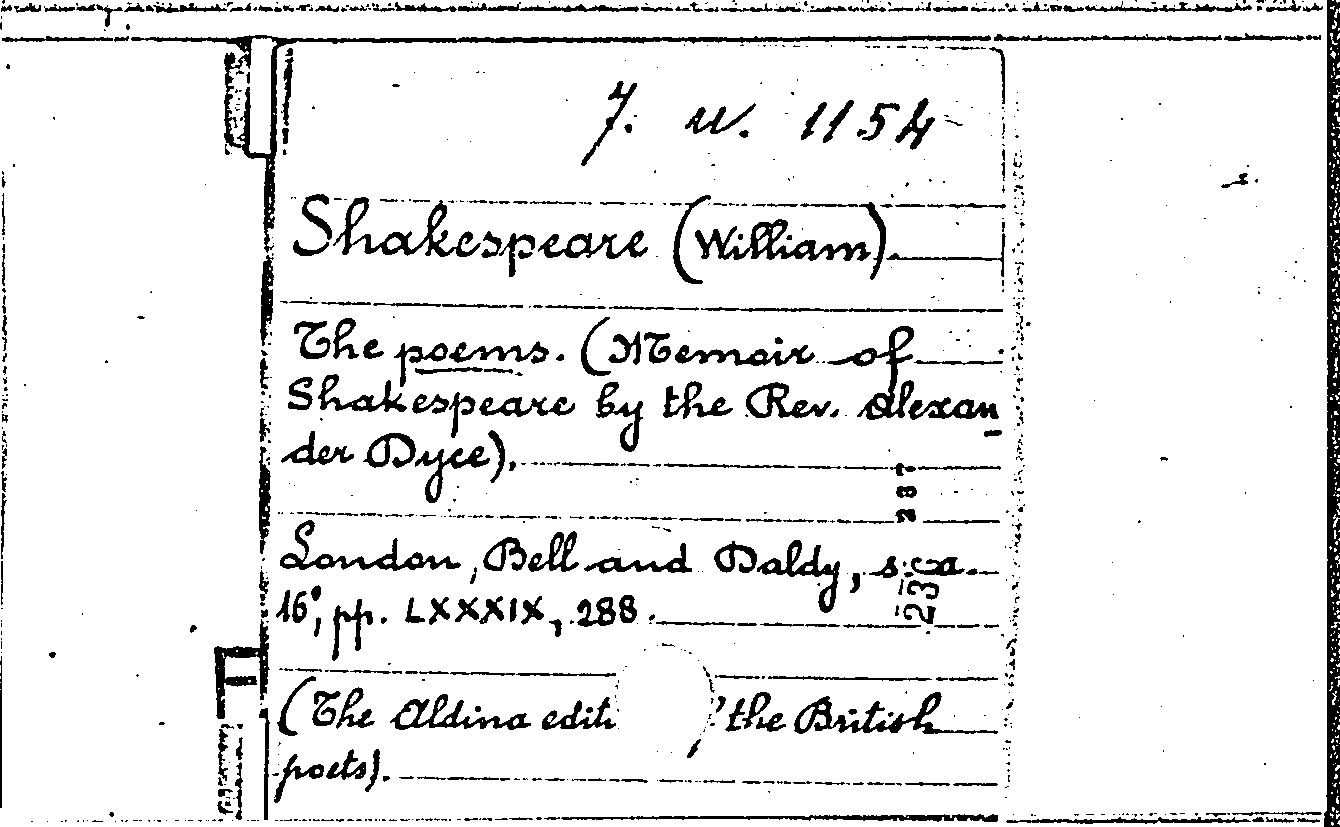 7. w. 1154
Shakespeare (William).
The poems. (Memoir of
Shakespeare by the Rev. Alexan
der Dyce).
237
London, Bell and Daldy, s.a.
16°, pp. LXXXIX, 288.
(The Aldina edit the British
poets).